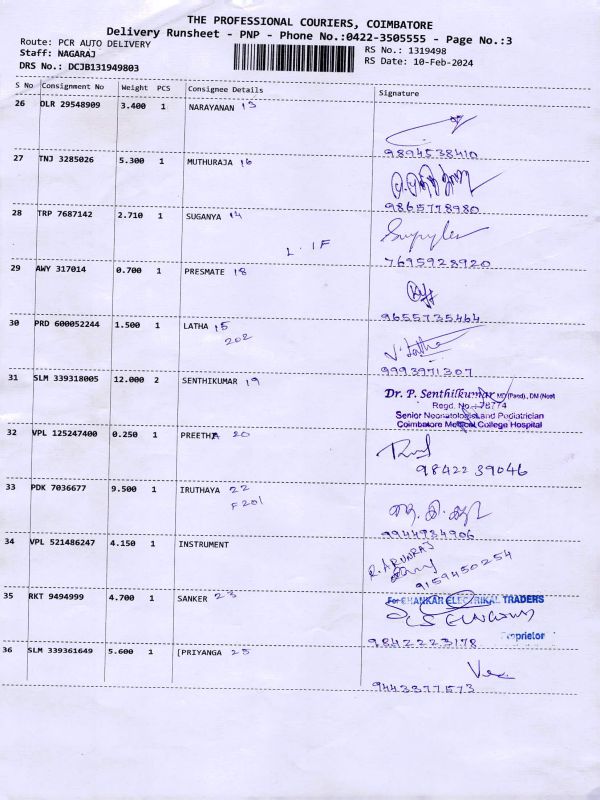 THE PROFESSIONAL COURIERS, COIMBATORE
Delivery Runsheet - PNP - Phone No.:0422-3505555 - Page No.:3
Route: PCR AUTO DELIVERY RS No.: 1319498
Staff: NAGARAJ RS Date: 10-Feb-2024
DRS No.: DCJB131949803
S No Consignment No Weight PCS Consignee Details Signature
26 DLR 29548909 3.400 1 NARAYANAN 13
9894538410
27 TNJ 3285026 5.300 1 MUTHURAJA 16
9865778980
28 TRP 7687142 2.710 1 SUGANYA 14
L. IF
7695928920
29 AWY 317014 0.700 1 PRESMATE 18
9655735464
30 PRD 600052244 1.500 1 LATHA 15
202 V. Latha
9993971307
31 SLM 339318005 12.000 2 SENTHIKUMAR 19
Dr. P. Senthilkumar MD (Paed)., DM (Neo)
Regd. No.: 78774
Senior Neonatologist and Pediatrician
Coimbatore Medical College Hospital
32 VPL 125247400 0.250 1 PREETHA 20
98422 39046
33 PDK 7036677 9.500 1 IRUTHAYA 22
F201
9944734906
34 VPL 521486247 4.150 1 INSTRUMENT
R. ARUNRAJ
9159450254
35 RKT 9494999 4.700 1 SANKER 23
For SHANKAR ELECTRIKAL TRADERS
Proprietor
9842223178
36 SLM 339361649 5.600 1 [PRIYANGA 25
9443377573